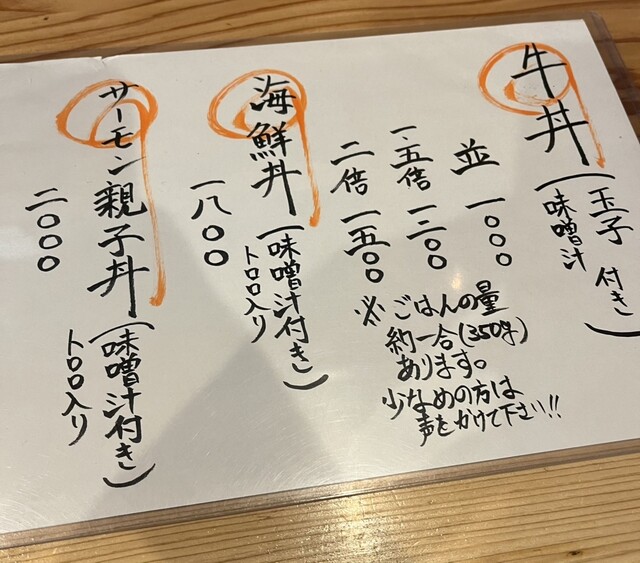 牛丼(玉子 味噌汁 付き)
並 一〇〇〇
一.五倍 一二〇〇
二倍 一五〇〇
※ごはんの量
約一合(350g)
あります。
少なめの方は
声をかけて下さい!!
海鮮丼(味噌汁付き)
トロロ入り
一八〇〇
サーモン親子丼(味噌汁付き)
トロロ入り
二〇〇〇